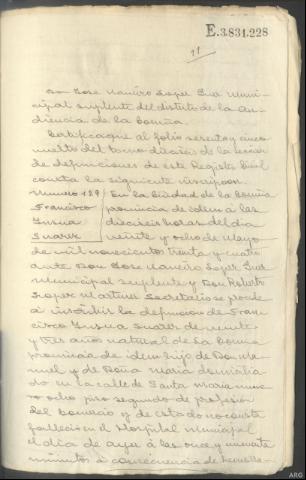 E.3.831.228
11
Don Jose Naveiro Lopez Juez Muni-
cipal suplente del distrito de la Au-
diencia de la Coruña.
Certifica que al folio sesenta y cinco
vuelto del tomo de la sección
de defunciones de este Registro Civil
consta la siguiente inscripcion
Numero 129
Francisco
Insua
Suarez
En la Ciudad de la Coruña
provincia de idem á las
dieciseis horas del dia
veinte y ocho de Mayo
de mil novecientos treinta y cuatro
ante Don Jose Naveiro Lopez Juez
Municipal suplente y Don Roberto
Lopez Martinez Secretario se procede
á inscribir la defuncion de Fran-
cisco Insua Suarez de veinte
y tres años natural de La Coruña
provincia de idem hijo de Don Ma-
nuel y de Doña Maria domicilia-
do en la calle de Santa Maria nume-
ro ocho piso segundo de profesion
del Comercio y de Estado no consta
fallecio en el Hospital municipal
el dia de ayer á las once y cuarenta
minutos á consecuencia de